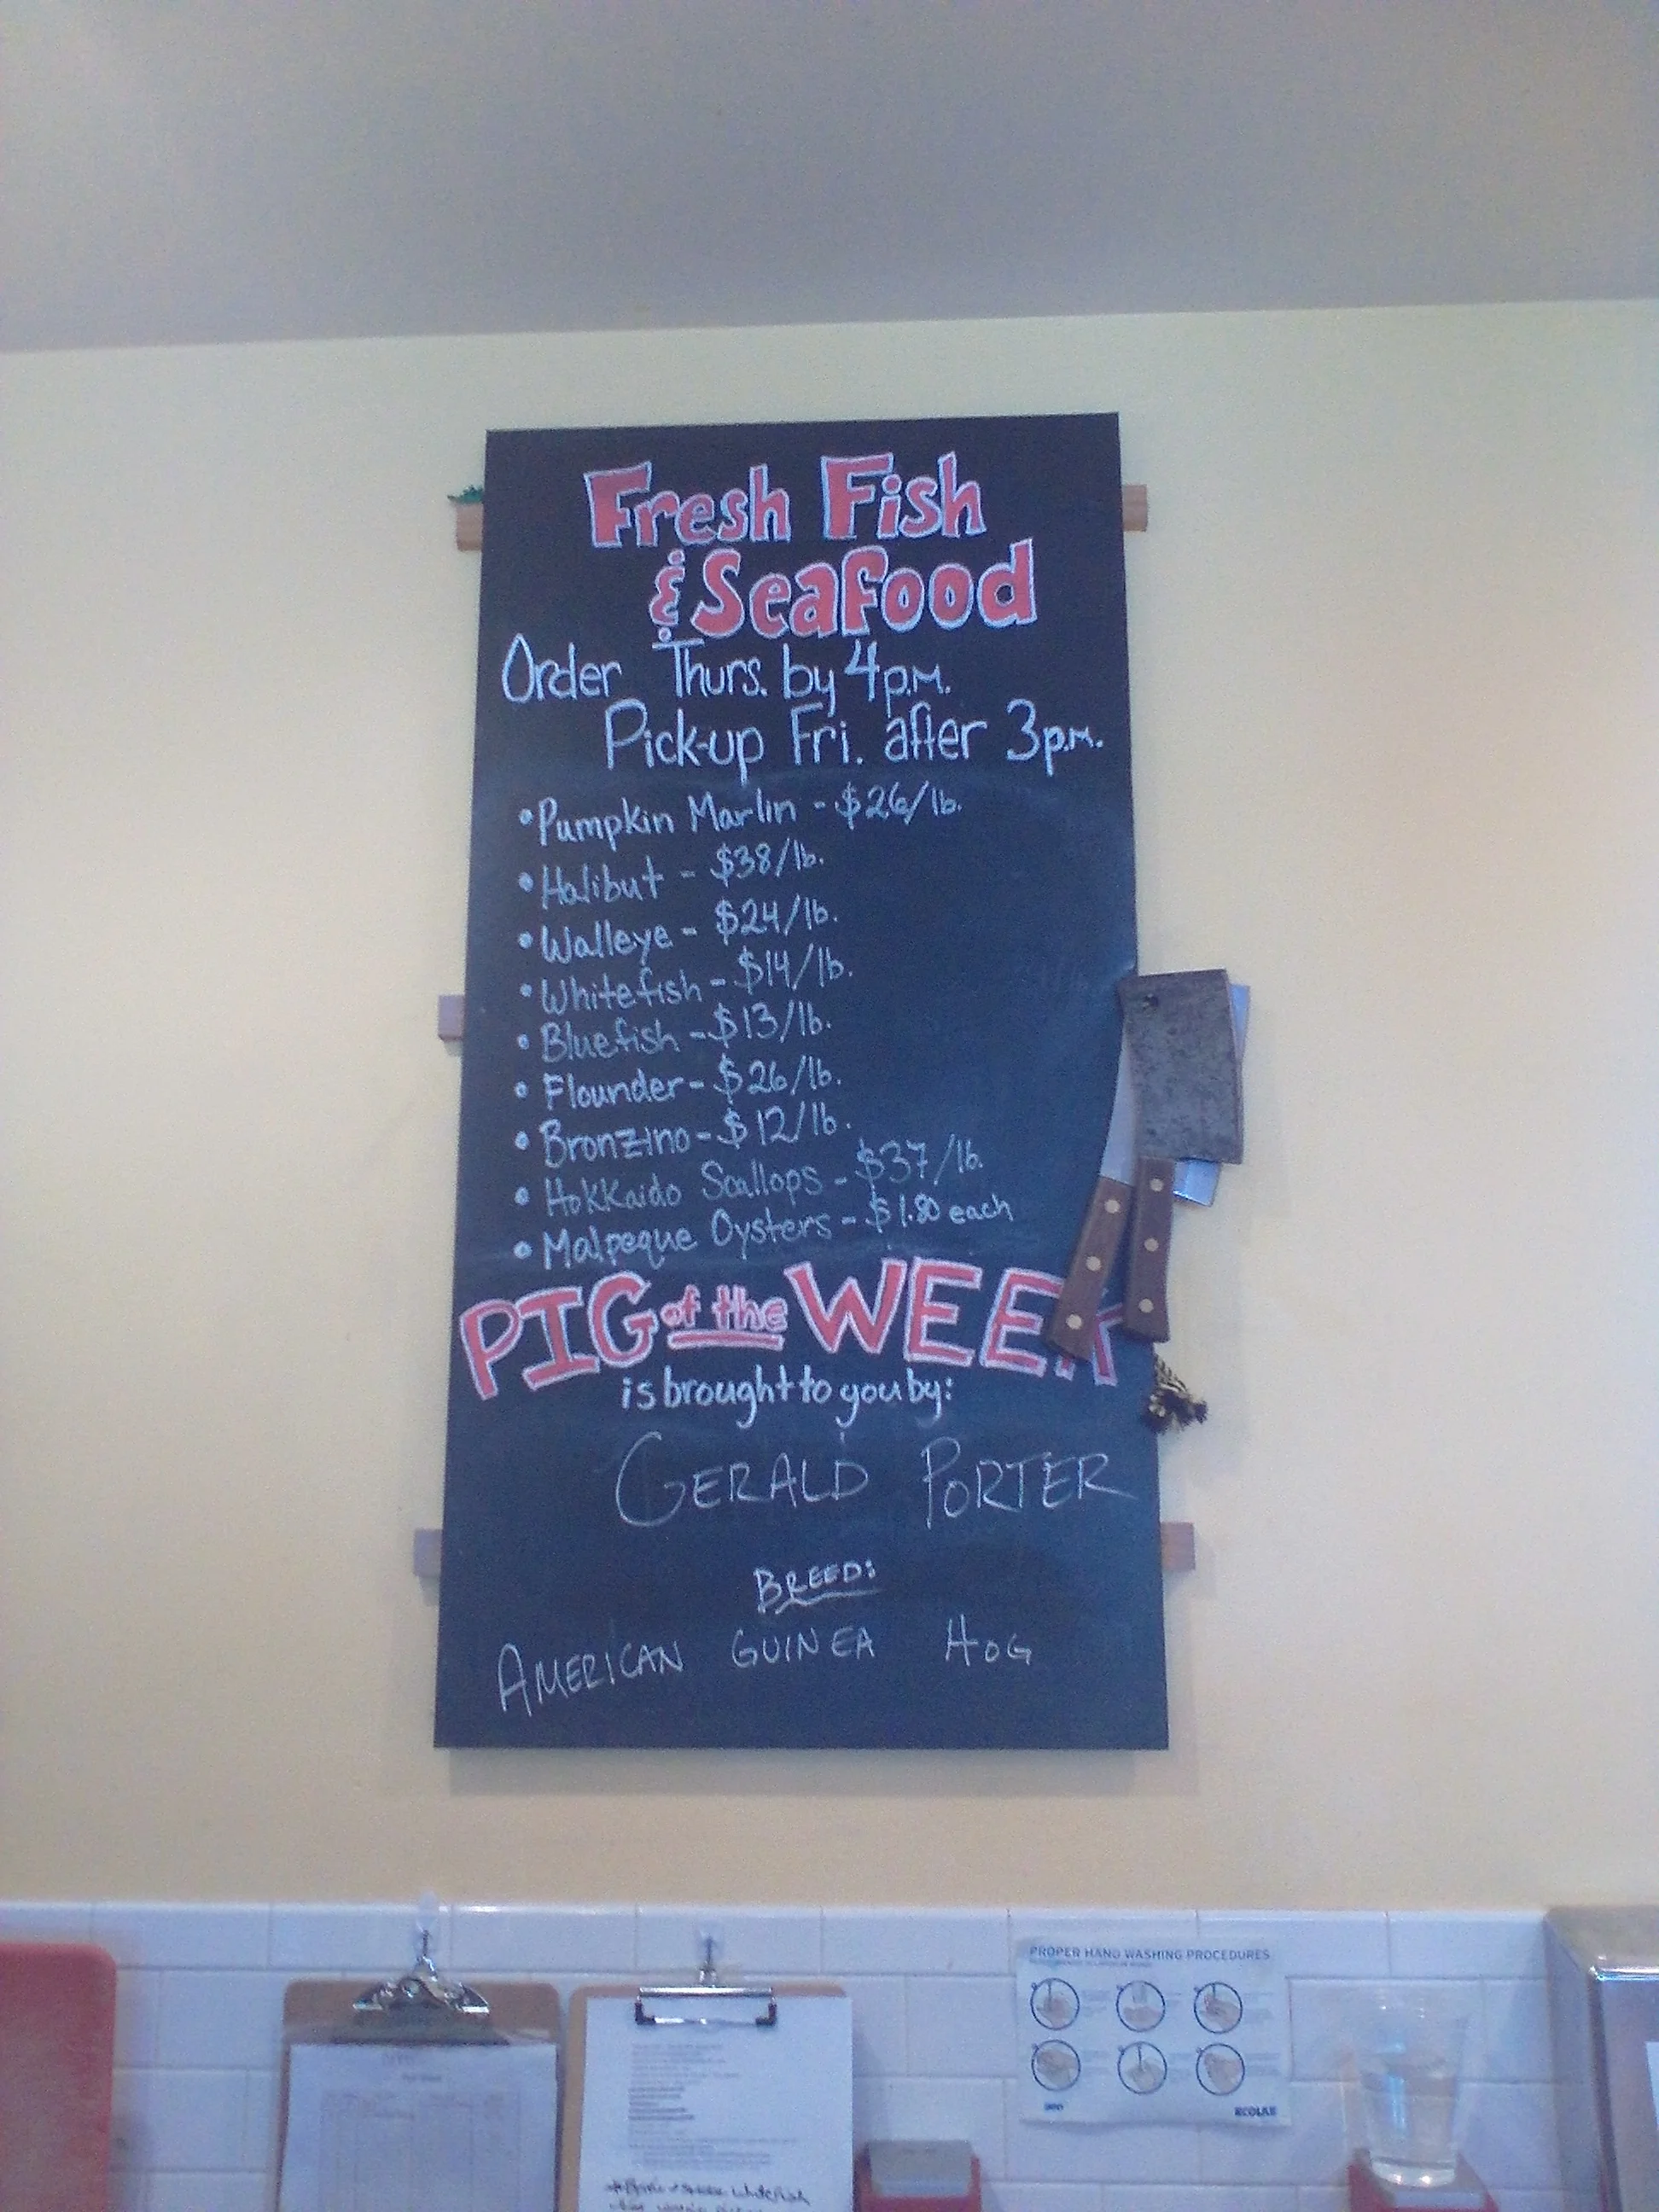 Fresh Fish
& Seafood
Order Thurs. by 4p.m.
Pick-up Fri. after 3p.m.
• Pumpkin Marlin - $26/lb.
• Halibut - $38/lb.
• Walleye - $24/lb.
• Whitefish - $14/lb.
• Bluefish - $13/lb.
• Flounder - $26/lb.
• Bronzino - $12/lb.
• Hokkaido Scallops - $37/lb.
• Malpeque Oysters - $1.80 each
PIG of the WEEK
is brought to you by:
GERALD PORTER
BREED:
AMERICAN GUINEA HOG
PROPER HAND WASHING PROCEDURES
ECOLAB